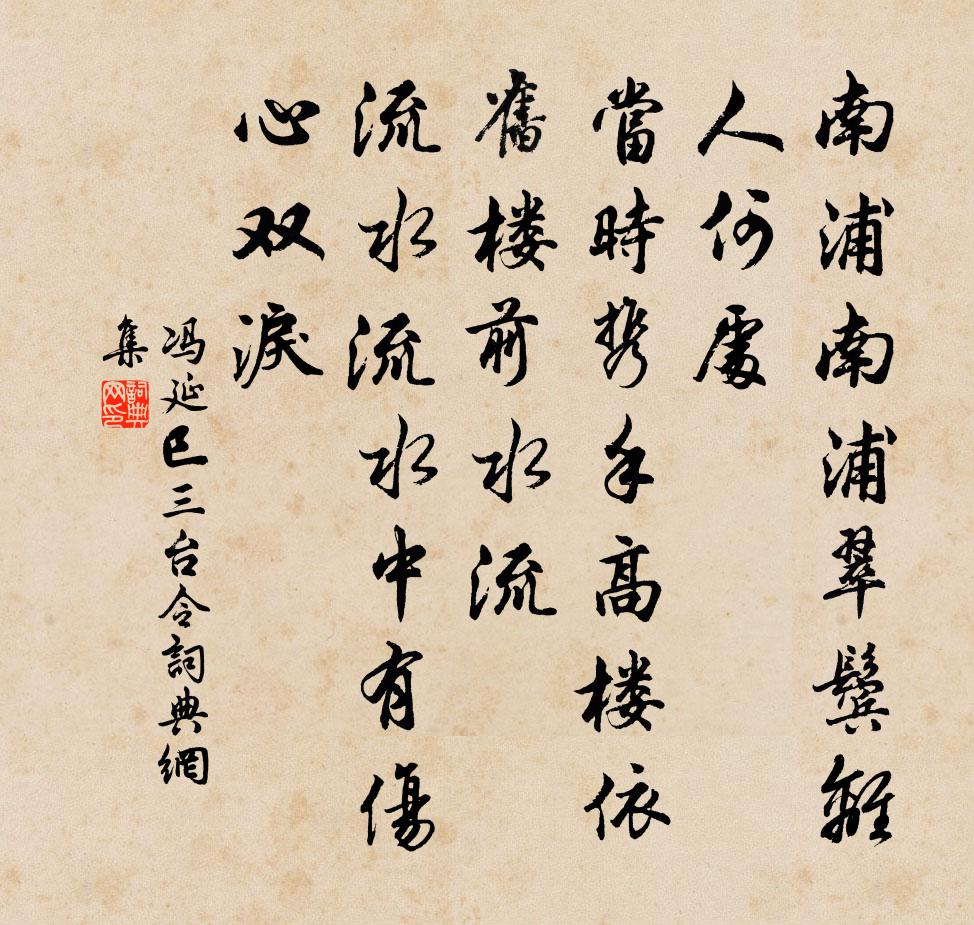 南浦南浦翠鬢離
人何處
當時携手高楼依
舊楼前水流
流水流水中有傷
心双淚
冯延巳三台令詞典網
集
詞典網印